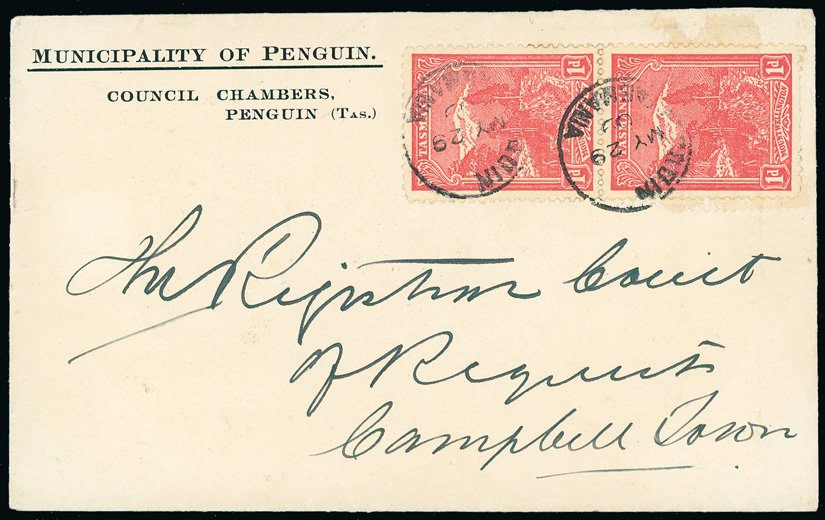 MUNICIPALITY OF PENGUIN.
COUNCIL CHAMBERS,
PENGUIN (TAS.)
1d 1d
TASMANIA
MY 29
GUIN
1d 1d
TASMANIA
MY 29
GUIN
The Registrar Court
of Requests
Campbell Town